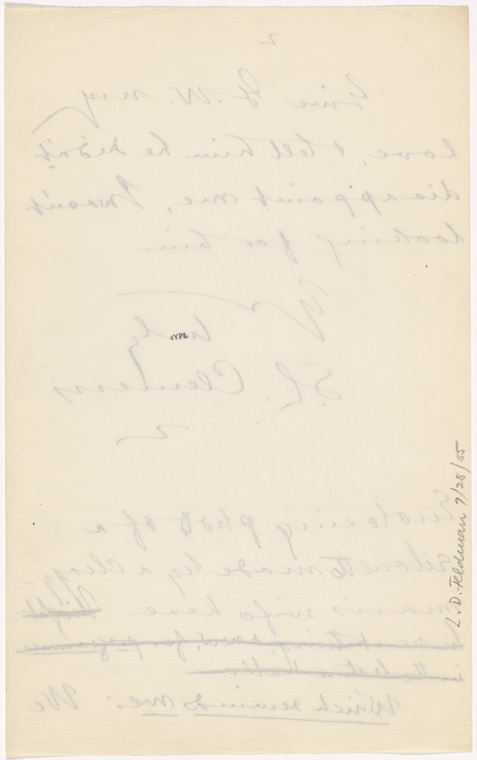 2
Give D. W. my
love, & tell him he didn't
disappoint me, I wasn't
looking for him
Yrs
truly
NYPL
S L. Clemens
Enclosing photo of a
silhouette made by a clergy-
man's wife here.
Which reminds me: We
L. D. Feldman 7/28/55